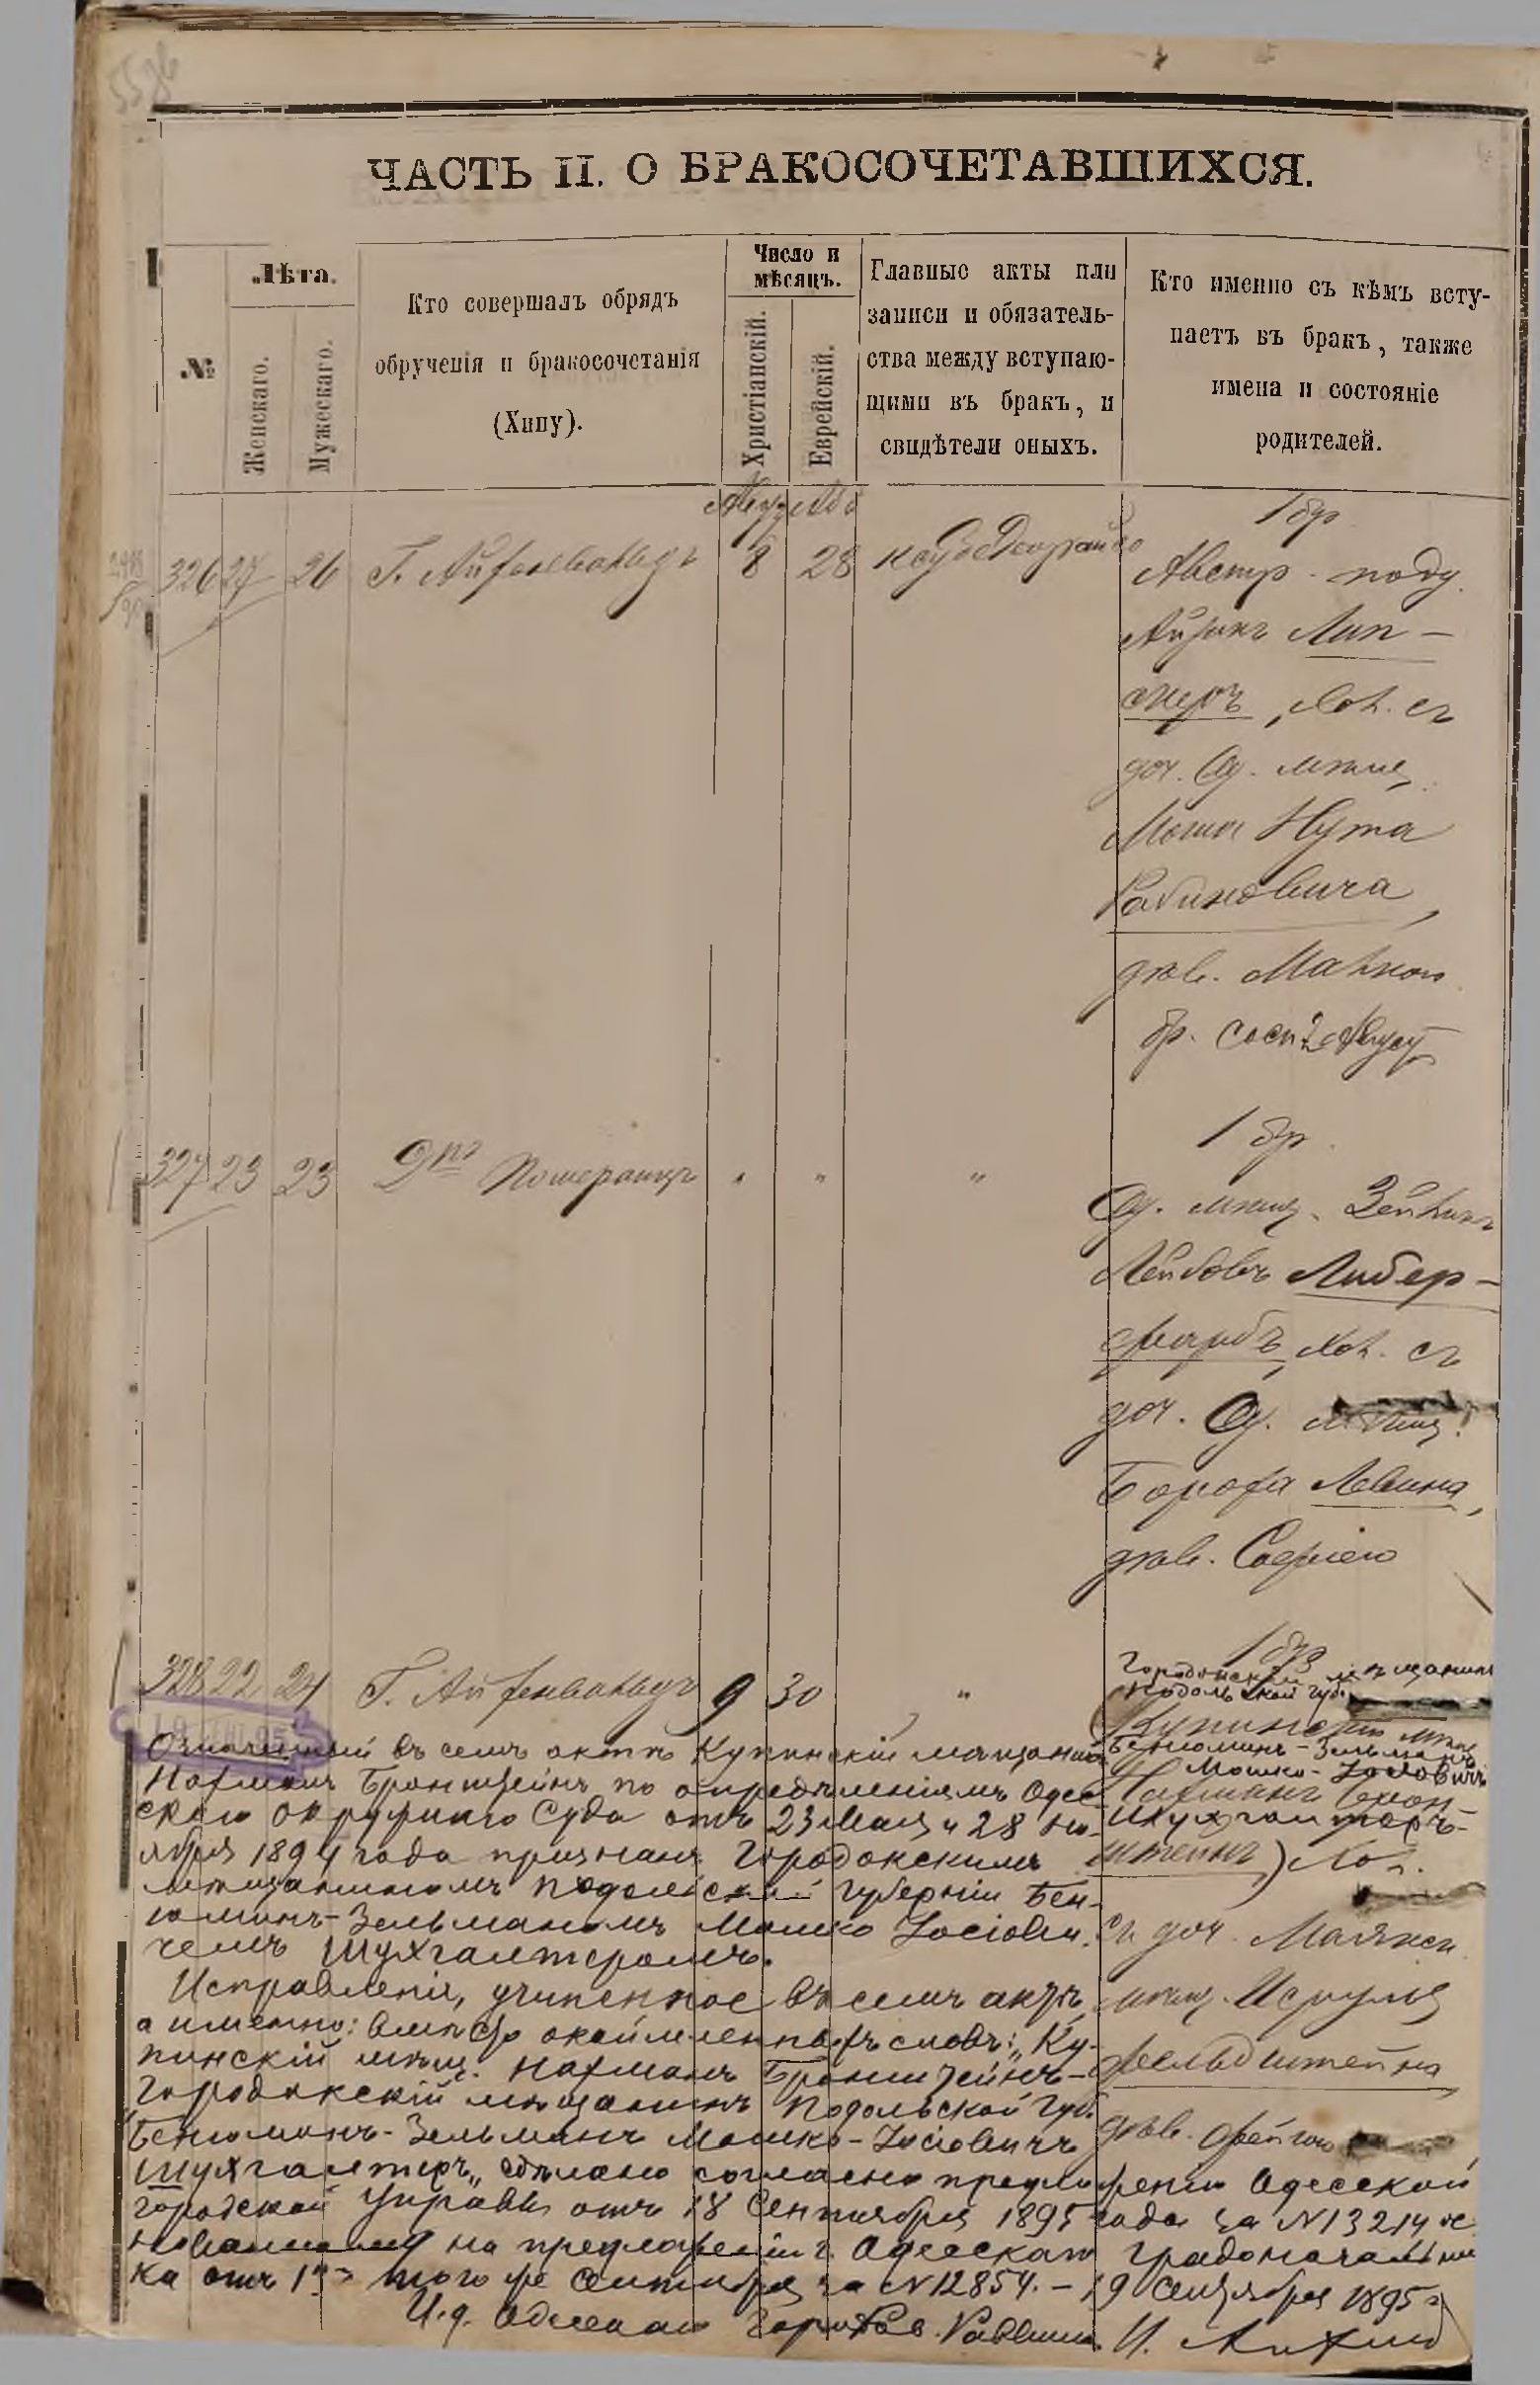 ЧАСТЬ II. О БРАКОСОЧЕТАВШИХСЯ.
№
Лѣта.
Женскаго.
Мужескаго.
Кто совершалъ обрядъ
обрученія и бракосочетанія
(Хипу).
Число и
мѣсяцъ.
Христіанскій.
Еврейскій.
Главные акты или
записи и обязатель-
ства между вступаю-
щими въ бракъ, и
свидѣтели оныхъ.
Кто именно съ кѣмъ всту-
паетъ въ бракъ, также
имена и состояніе
родителей.
326 27 26 Г. 8 28
1 бр
Австр. подд.
Лип-
, хол. съ
доч. Од. мѣщ.
Нута
Рабиновича,
дѣв.
327 23 23 Померанцъ " " "
1 бр.
Од. мѣщ.
Лейбовъ Либер-
фарбъ, хол. съ
доч. Од. мѣщ.
Бороха Левина,
дѣв. Софіею
328 22 24 Г. 9 30 "
1 бр
Городокскій мѣщанинъ
Подольской губ.
Купинскій мѣщ.
Беньюминъ-Зельманъ
Мошко-Іосіовичъ
Нахманъ Брон-
Шухгалтеръ-
штейнъ) Хол.
съ доч. Маякск.
мѣщ. Исруля
Фельдштейна
дѣв.
Означенный въ семъ актѣ Купинскій мѣщанинъ
Нахманъ Бронштейнъ по опредѣленіямъ Одес
скаго Окружнаго Суда отъ 23 Мая и 28 но-
ября 1894 года признанъ Городокскимъ
мѣщаниномъ Подольской губерніи Бен-
юминъ-Зельманомъ Мошко Іосіови-
чемъ Шухгалтеромъ.
Исправленіе, учиненное въ семъ актѣ,
а именно: вмѣсто окаймленныхъ словъ: "Ку-
пинскій мѣщ. Нахманъ Бронштейнъ-
Городокскій мѣщанинъ Подольской губ.
Беньюминъ-Зельманъ Мошко-Іосіовичъ
Шухгалтеръ" сдѣлано согласно предложенію Одесской
городской Управы отъ 18 Сентября 1895 года за № 13214 ос
нованному на предложеніи г. Одесскаго Градоначальни
ка отъ того же Сентября за № 12854. - 19 Сентября 1895 г.
И. д. Одесскаго Городов. Раввина